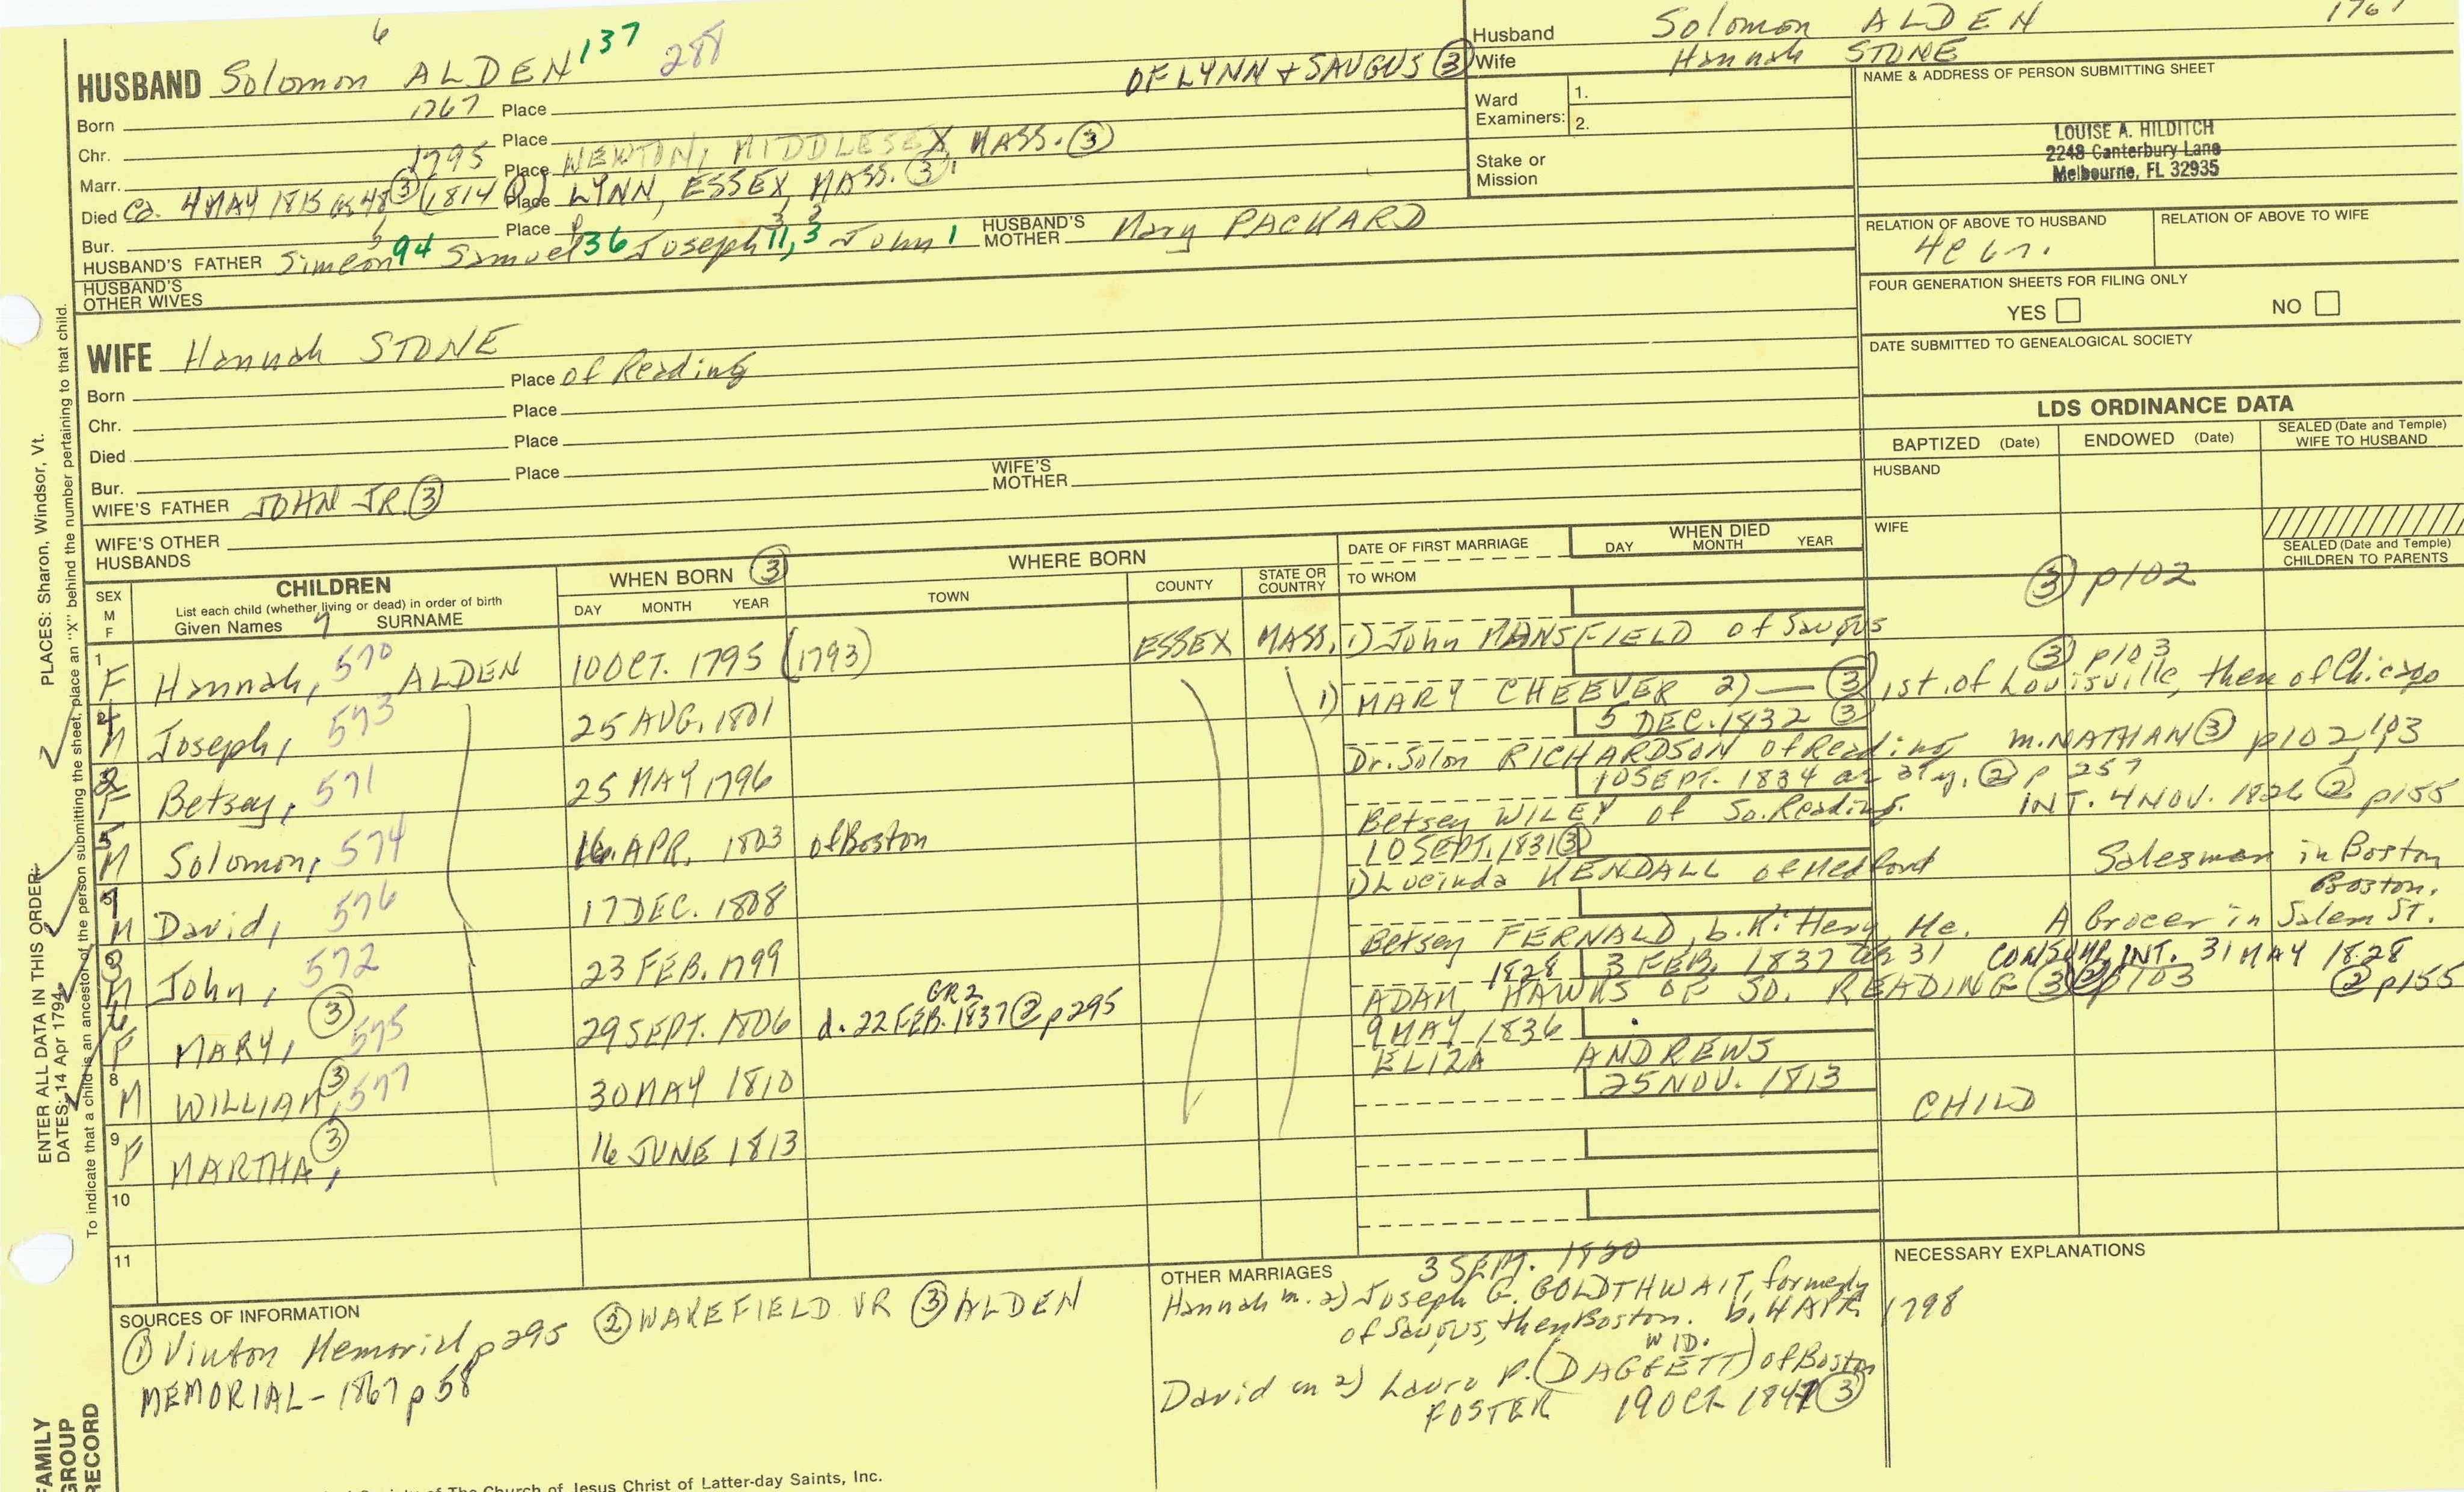 6
HUSBAND Solomon ALDEN 137 288
OF LYNN + SAUGUS (3)
Born 1767 Place
Chr. Place
Marr. 1795 Place NEWTON, MIDDLESEX, MASS. (3)
Died Ca. 4 MAY 1815 (3) (1814 Place LYNN, ESSEX, MASS. (3)
Bur. Place
HUSBAND'S FATHER Simeon 94 Samuel 36 Joseph 11, 3 John 1 HUSBAND'S MOTHER Mary PACKARD
HUSBAND'S OTHER WIVES
Husband Solomon ALDEN 1767
Wife Hannah STONE
Ward Examiners: 1.
2.
Stake or Mission
NAME & ADDRESS OF PERSON SUBMITTING SHEET
LOUISE A. HILDITCH
2248 Canterbury Lane
Melbourne, FL 32935
RELATION OF ABOVE TO HUSBAND RELATION OF ABOVE TO WIFE
FOUR GENERATION SHEETS FOR FILING ONLY
YES NO
DATE SUBMITTED TO GENEALOGICAL SOCIETY
WIFE Hannah STONE
Born Place of Reading
Chr. Place
Died Place
Bur. Place
WIFE'S FATHER JOHN JR. (3) WIFE'S MOTHER
WIFE'S OTHER HUSBANDS
LDS ORDINANCE DATA
BAPTIZED (Date) ENDOWED (Date) SEALED (Date and Temple) WIFE TO HUSBAND
HUSBAND
WIFE
SEALED (Date and Temple) CHILDREN TO PARENTS
(3) p102
SEX M F
CHILDREN
List each child (whether living or dead) in order of birth
Given Names 7 SURNAME
WHEN BORN (3)
DAY MONTH YEAR
WHERE BORN
TOWN COUNTY STATE OR COUNTRY
DATE OF FIRST MARRIAGE
TO WHOM
WHEN DIED
DAY MONTH YEAR
1 F Hannah, 570 ALDEN 10 OCT. 1795 (1793) ESSEX MASS. 1) John MANSFIELD of Saugus
(3) p103
4 M Joseph, 573 25 AUG. 1801 1) MARY CHEEVER 2) — (3) 1st. of Louisville, then of Chicago
5 DEC. 1832 (3)
2 F Betsey, 571 25 MAY 1796 Dr. Solon RICHARDSON of Reading m. NATHAN (3) p102, 103
10 SEPT. 1834 (2) p 257
5 M Solomon, 574 16 APR. 1803 of Boston Betsey WILEY of So. Reading. INT. 4 NOV. 1826 (2) p155
10 SEPT. 1831 (3)
7 M David, 576 17 DEC. 1808 1) Lucinda KENDALL of Medford Salesman in Boston
3 M John, 572 23 FEB. 1799 Betsey FERNALD, b. Kittery, Me. A Grocer in Salem St. Boston.
1828 3 FEB. 1837 31 INT. 31 MAY 1828
6 F MARY, (3) 575 29 SEPT. 1806 GR2 d. 22 FEB. 1837 (2) p295 ADAM HAWKS OF SO. READING (3) p103 (2) p155
9 MAY 1836
8 M WILLIAM, (3) 577 30 MAY 1810 ELIZA ANDREWS
25 NOV. 1813
9 F MARTHA, (3) 16 JUNE 1813 CHILD
10
11
SOURCES OF INFORMATION
(1) Vinton Memorial p295 (2) WAKEFIELD VR (3) ALDEN
MEMORIAL - 1867 p 58
OTHER MARRIAGES 3 SEPT. 1820
Hannah m. 2) Joseph G. GOLDTHWAIT, formerly
of Saugus, then Boston. b. 4 APR. 1798
WID.
David m 2) Laura P. (DAGGETT) of Boston
FOSTER 19 OCT. 1847 (3)
NECESSARY EXPLANATIONS
ENTER ALL DATA IN THIS ORDER:
DATES: 14 Apr 1794 PLACES: Sharon, Windsor, Vt.
To indicate that a child is an ancestor of the person submitting the sheet, place an "X" behind the number pertaining to that child.
FAMILY
GROUP
RECORD
The Church of Jesus Christ of Latter-day Saints, Inc.